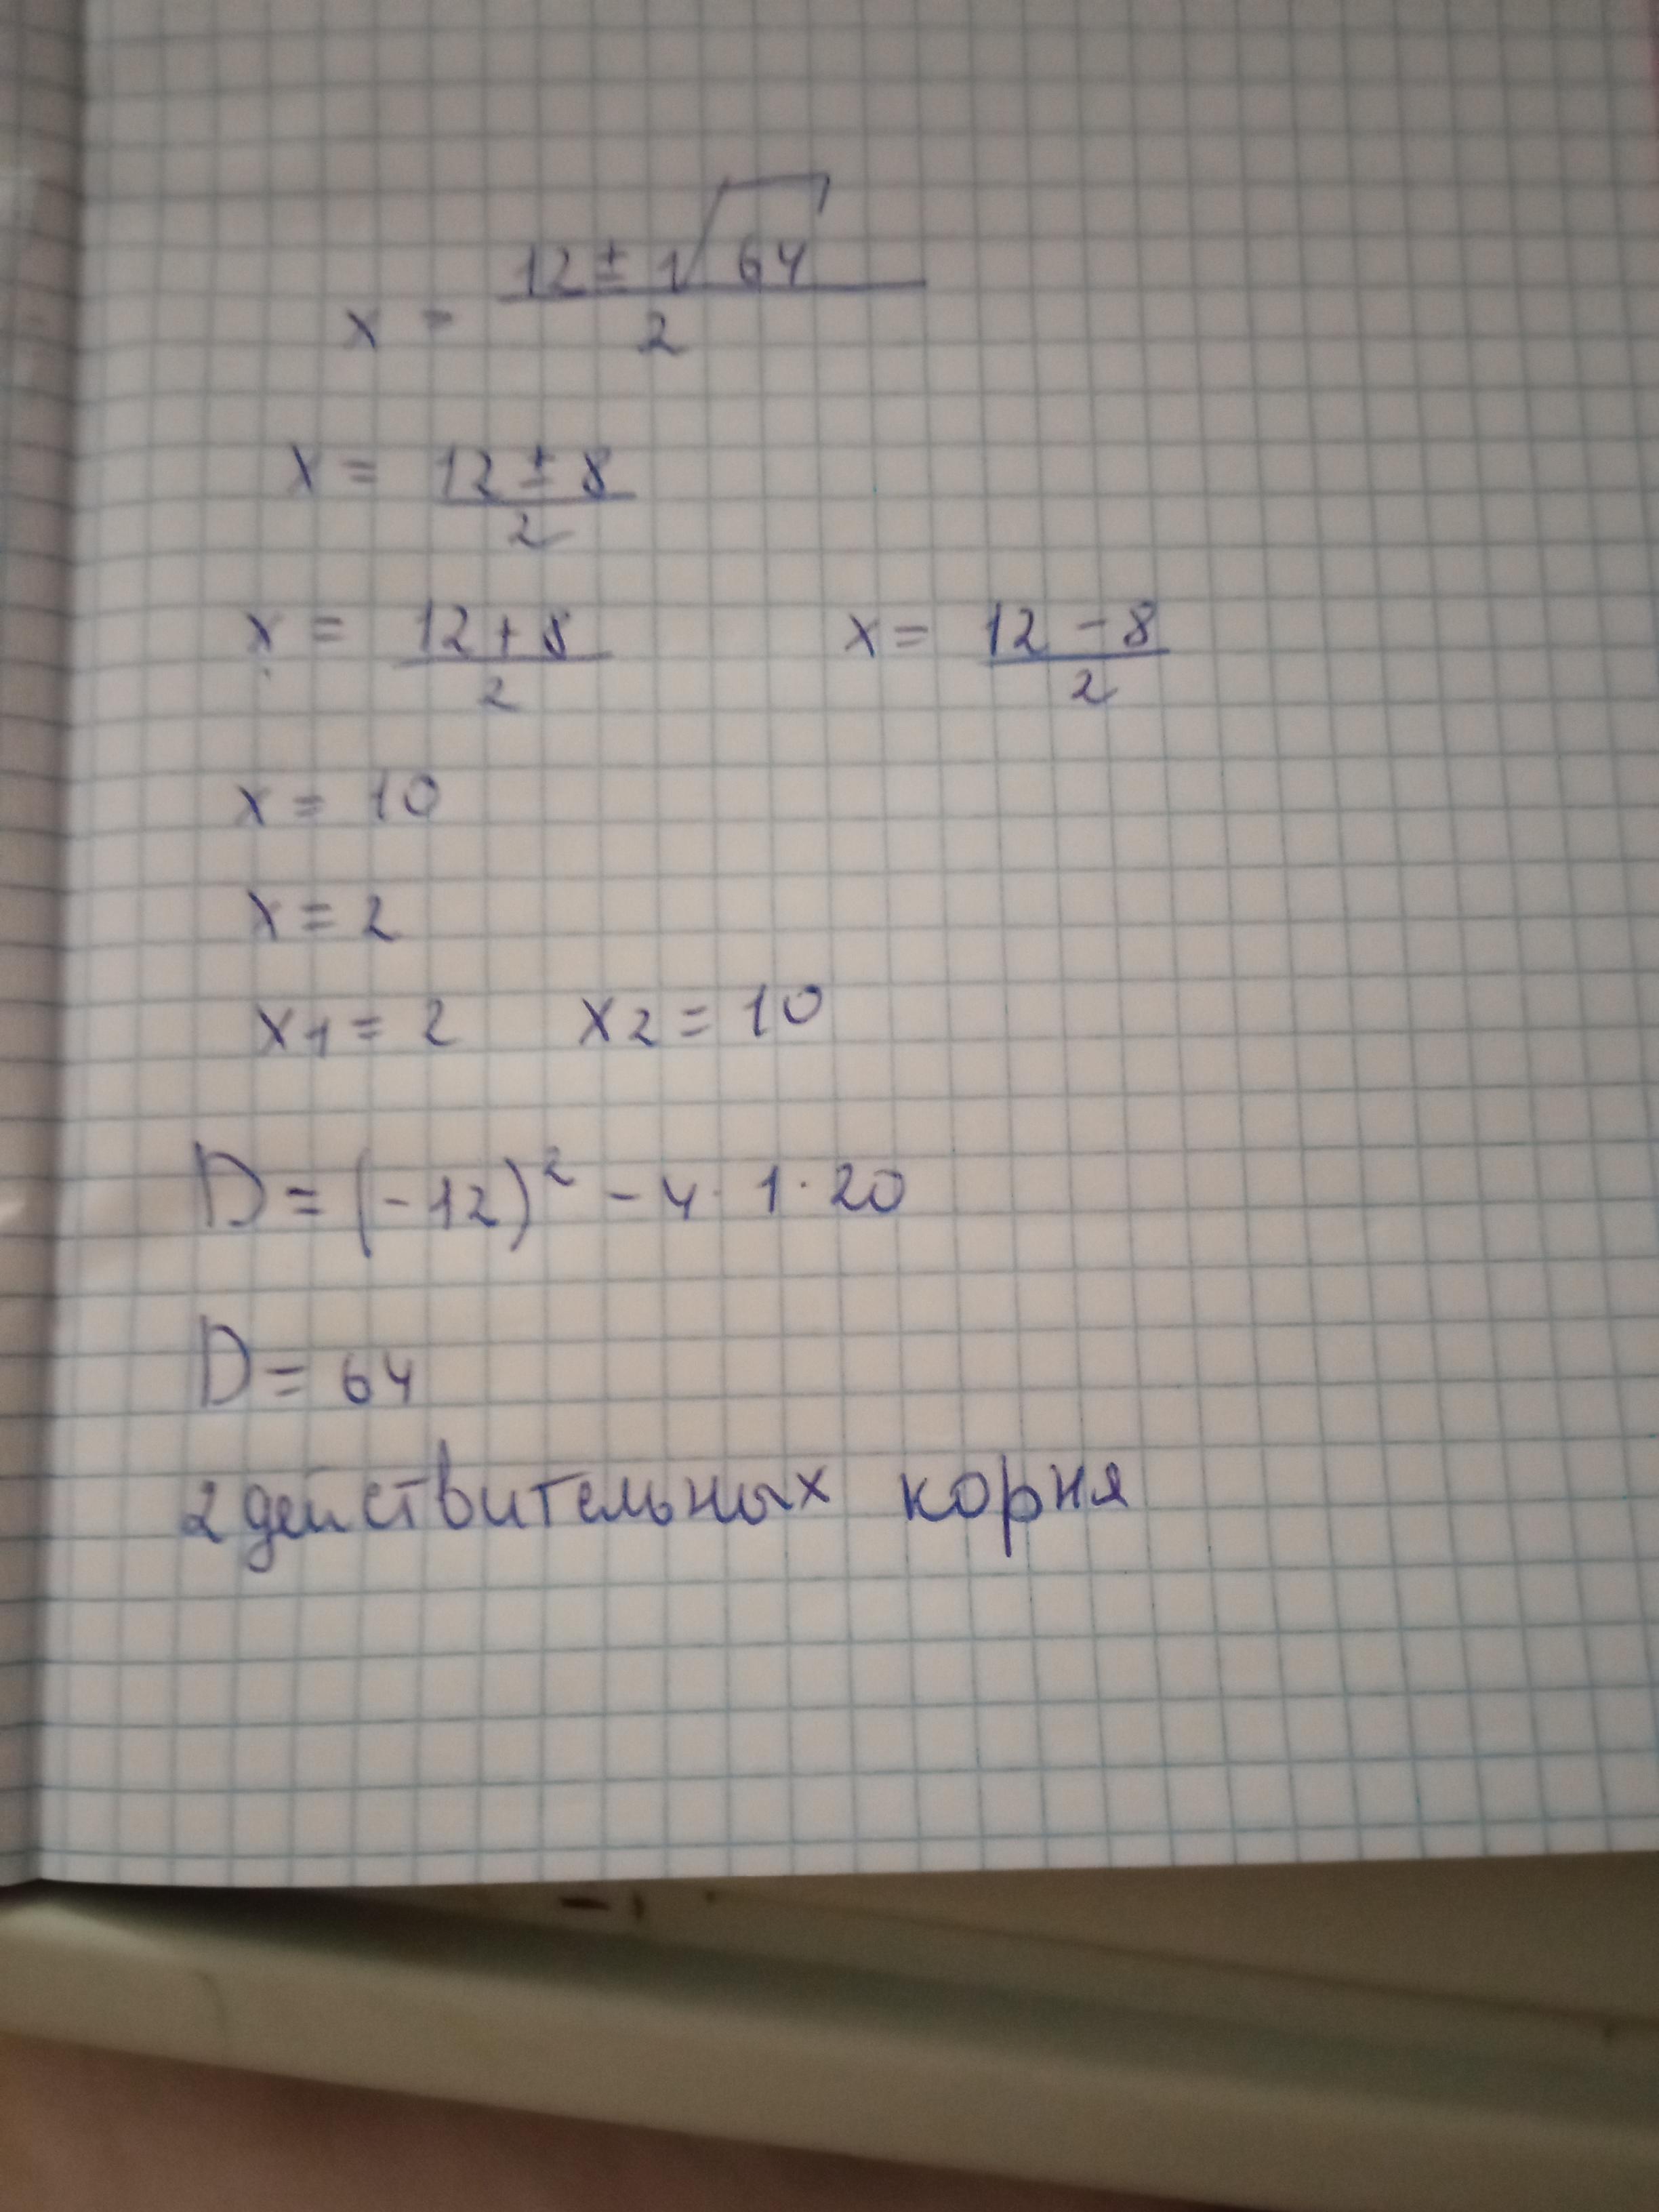 x = 12 ± √64 / 2
x = 12 ± 8 / 2
x = 12 + 8 / 2 x = 12 - 8 / 2
x = 10
x = 2
x1 = 2 x2 = 10
D = (-12)² - 4 · 1 · 20
D = 64
2 действительных корня